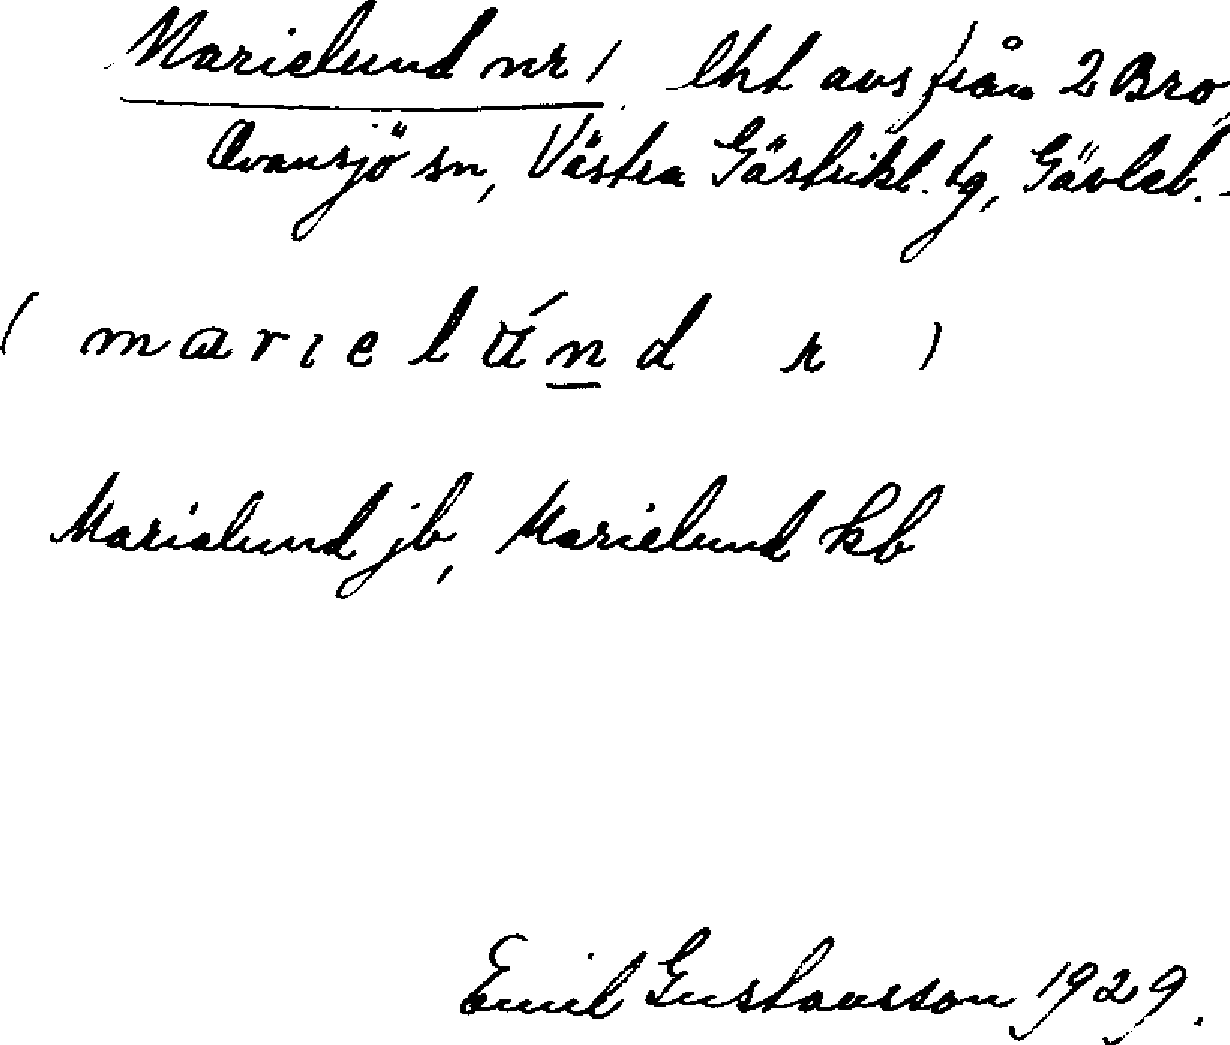 Marielund nr 1. lht avs från 2 Bro,
Ovansjö sn, Västra Gästrikl. tg, Gävleb.
( marielúnd r )
Marielund jb, Marielund kb
Emil Gustavsson 1929.